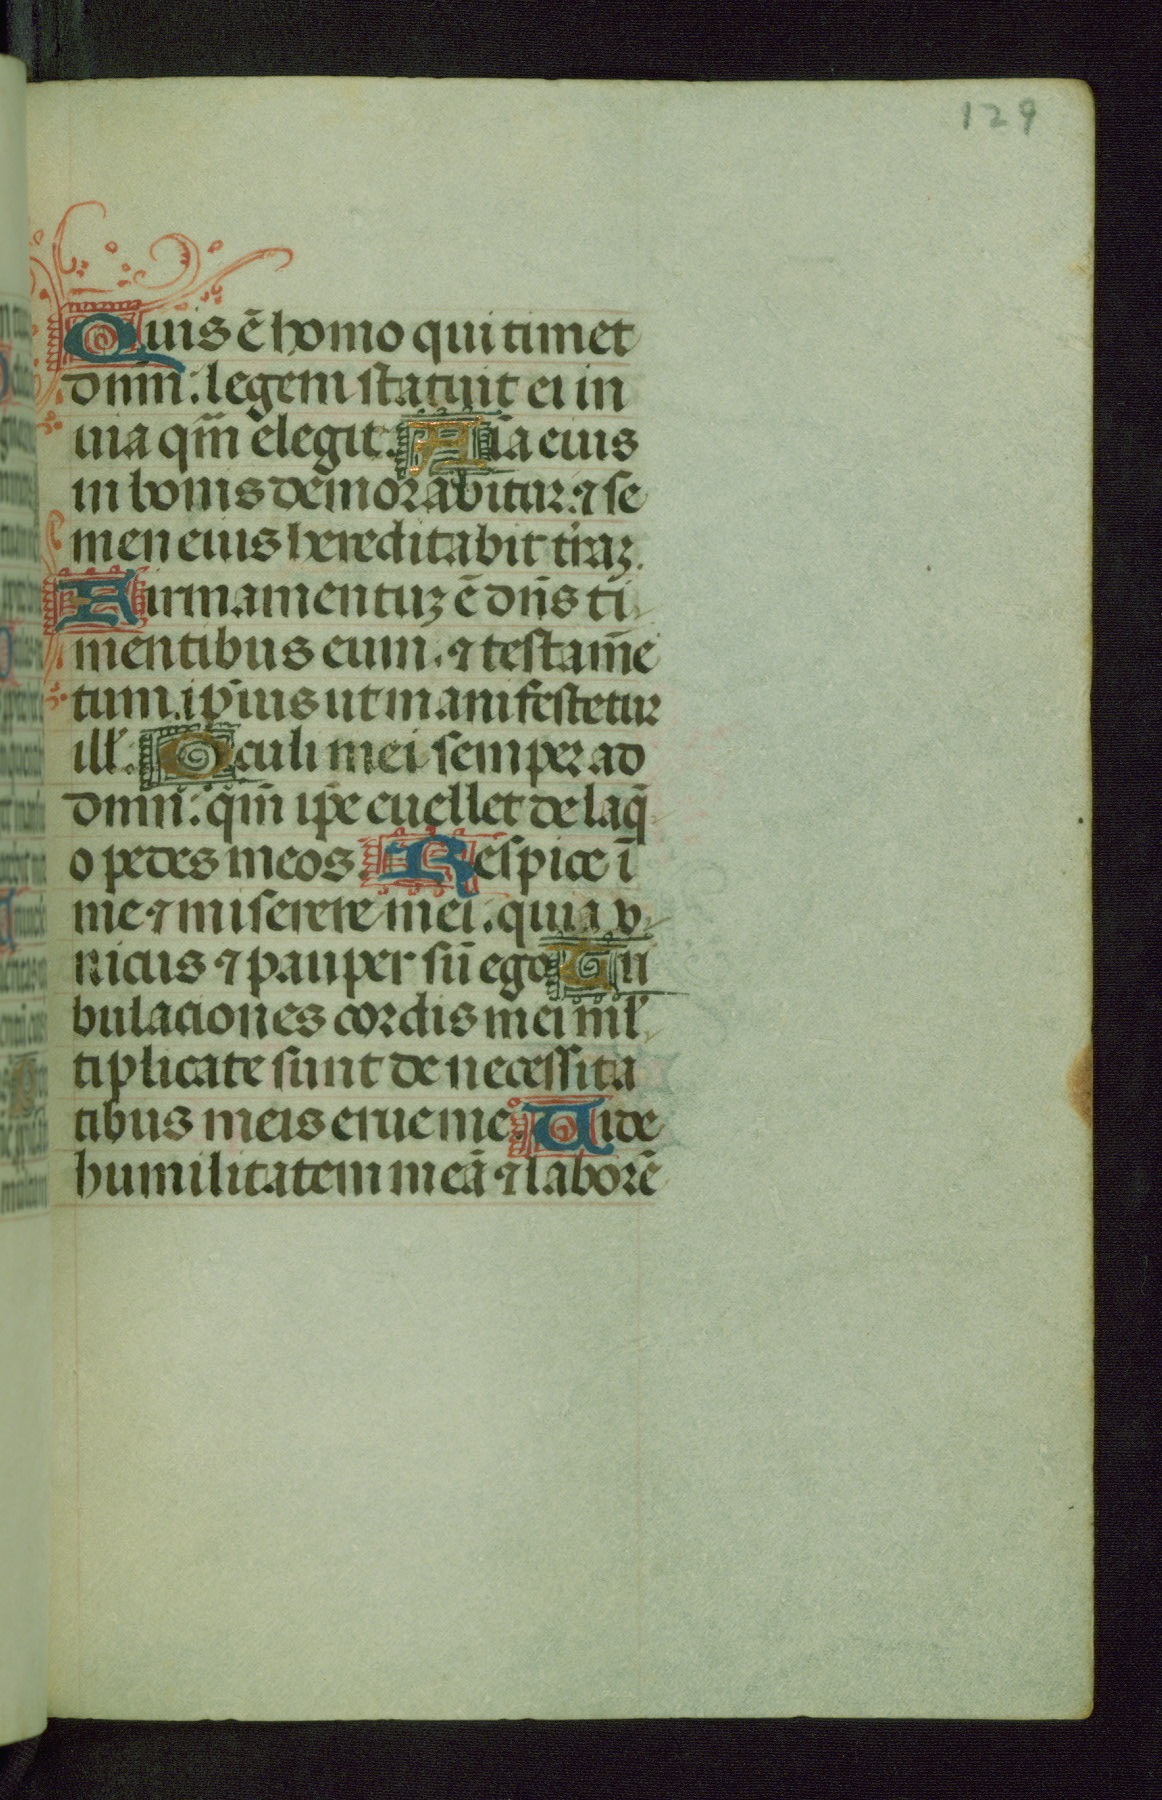 129
Quis ē homo qui timet
dnm̄: legem statuit ei in
uia qm̄ elegit. Aīa eius
in bonis demorabitur. ⁊ se
men eius hereditabit t'raꝫ.
Firmamentuꝫ ē dn̄s ti
mentibus eum. ⁊ testam̄e
tum ip̄ius ut manifestetur
ill'. Oculi mei semper ad
dmn̄: qm̄ ip̄e euellet de laq̄
o pedes meos Respice ī
me ⁊ miserere mei. quia v
nicus ⁊ pauper sū ego Tri
bulaciones cordis mei ml'
tiplicate sunt de necessita
tibus meis erue me. Uide
humilitatem meā ⁊ laborē